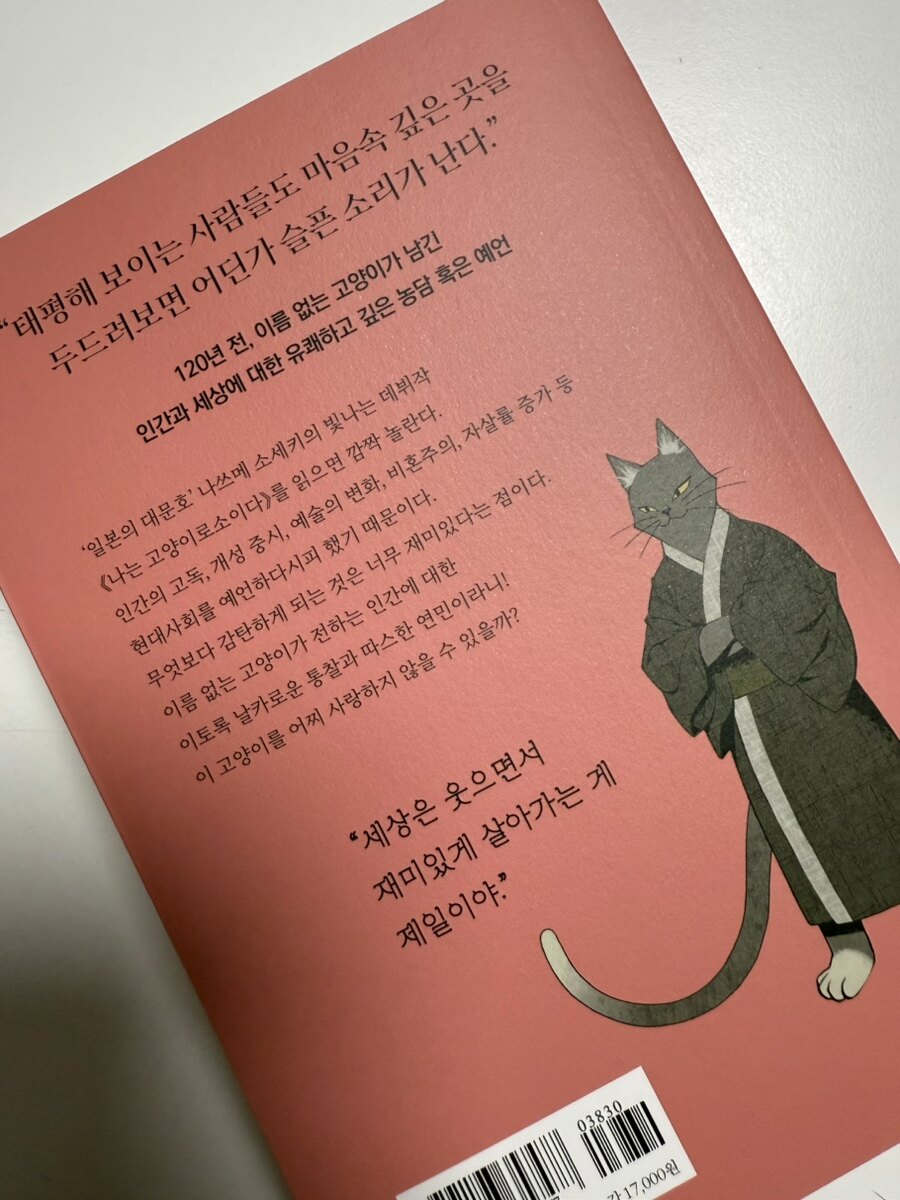 “태평해 보이는 사람들도 마음속 깊은 곳을
두드려보면 어딘가 슬픈 소리가 난다.”
120년 전, 이름 없는 고양이가 남긴
인간과 세상에 대한 유쾌하고 깊은 농담 혹은 예언
‘일본의 대문호’ 나쓰메 소세키의 빛나는 데뷔작
《나는 고양이로소이다》를 읽으면 깜짝 놀란다.
인간의 고독, 개성 중시, 예술의 변화, 비혼주의, 자살률 증가 등
현대사회를 예언하다시피 했기 때문이다.
무엇보다 감탄하게 되는 것은 너무 재미있다는 점이다.
이름 없는 고양이가 전하는 인간에 대한
이토록 날카로운 통찰과 따스한 연민이라니!
이 고양이를 어찌 사랑하지 않을 수 있을까?
“세상은 웃으면서
재미있게 살아가는 게
제일이야.”
03830
17,000원